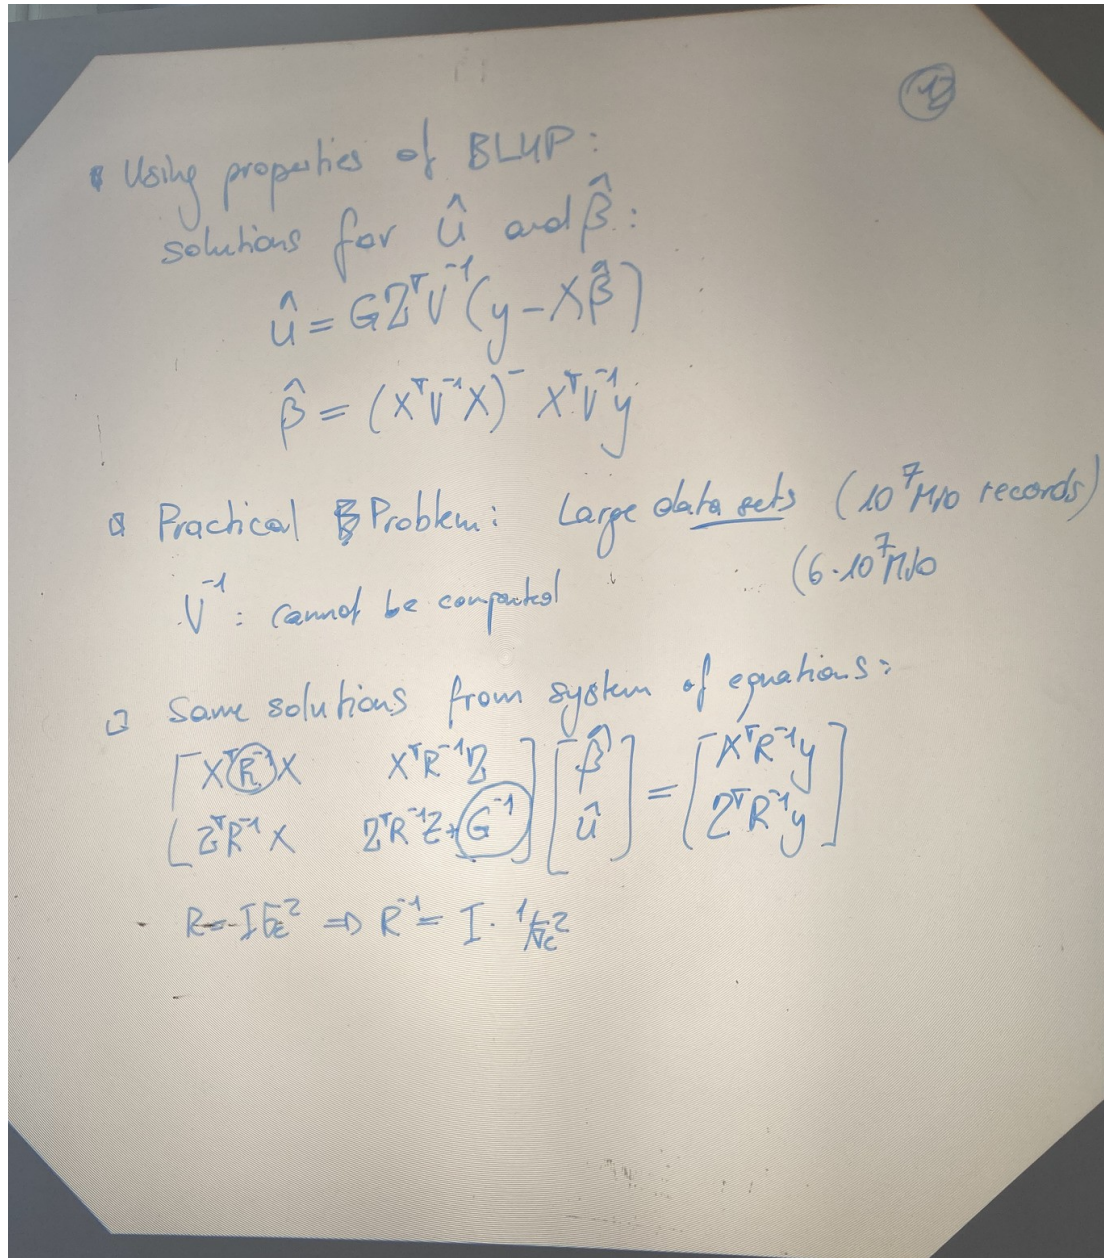 Using properties of BLUP:
solutions for û and β̂:
û = GZᵀV⁻¹(y - Xβ̂)
β̂ = (XᵀV⁻¹X)⁻ XᵀV⁻¹y
Practical Problem: Large data sets (10⁷ Mio records)
(6·10⁷ Mio
V⁻¹: cannot be computed
Same solutions from system of equations:
[XᵀR⁻¹X XᵀR⁻¹Z] [β̂] = [XᵀR⁻¹y]
[ZᵀR⁻¹X ZᵀR⁻¹Z+G⁻¹] [û] [ZᵀR⁻¹y]
R = Iσₑ² ⇒ R⁻¹ = I · 1/σₑ²